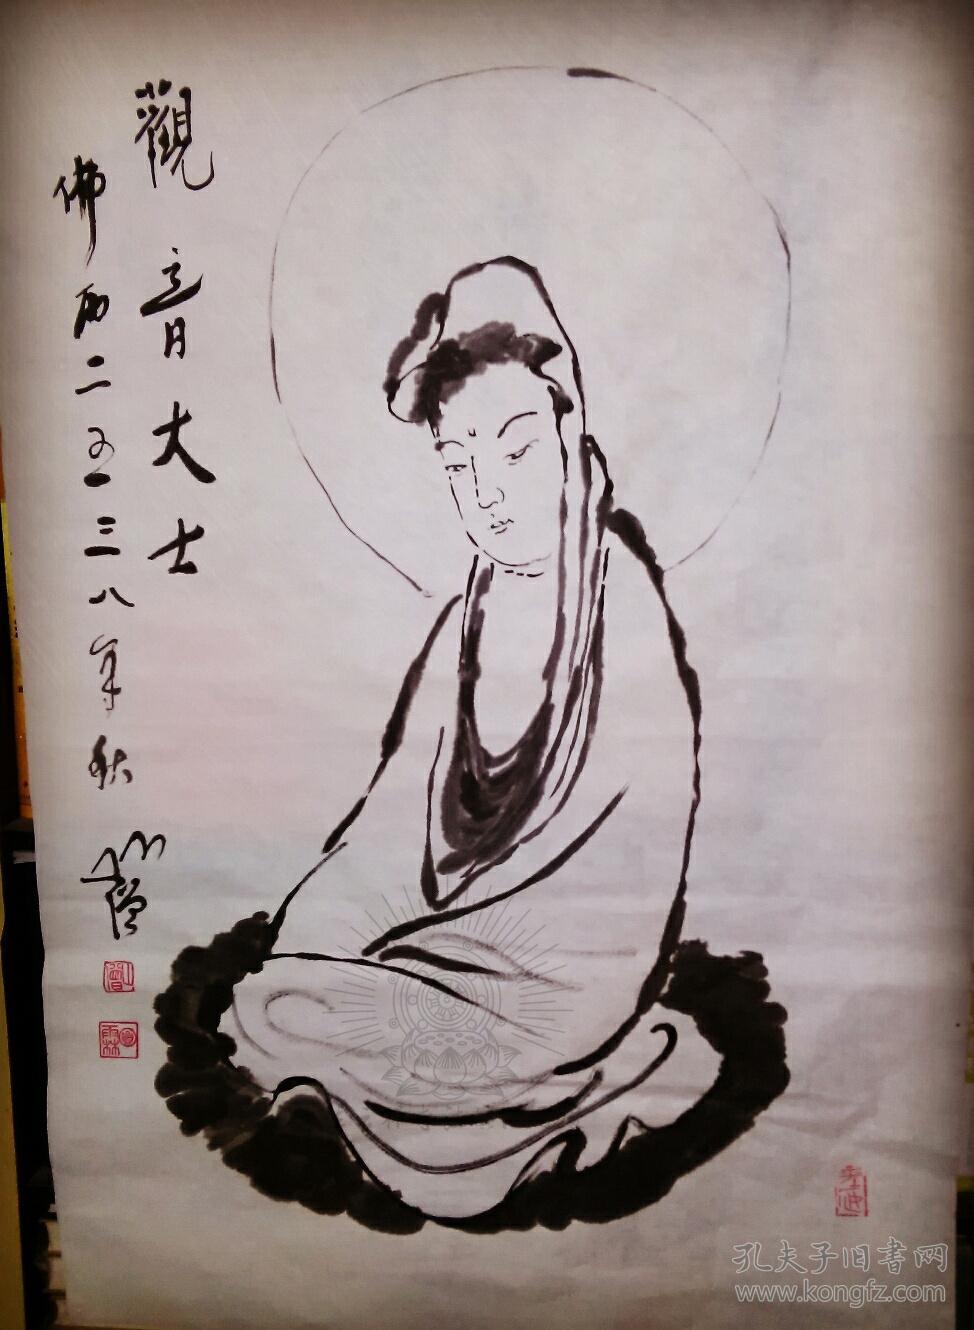 觀音大士
佛历二五三八年秋
孔夫子旧書网
www.kongfz.com